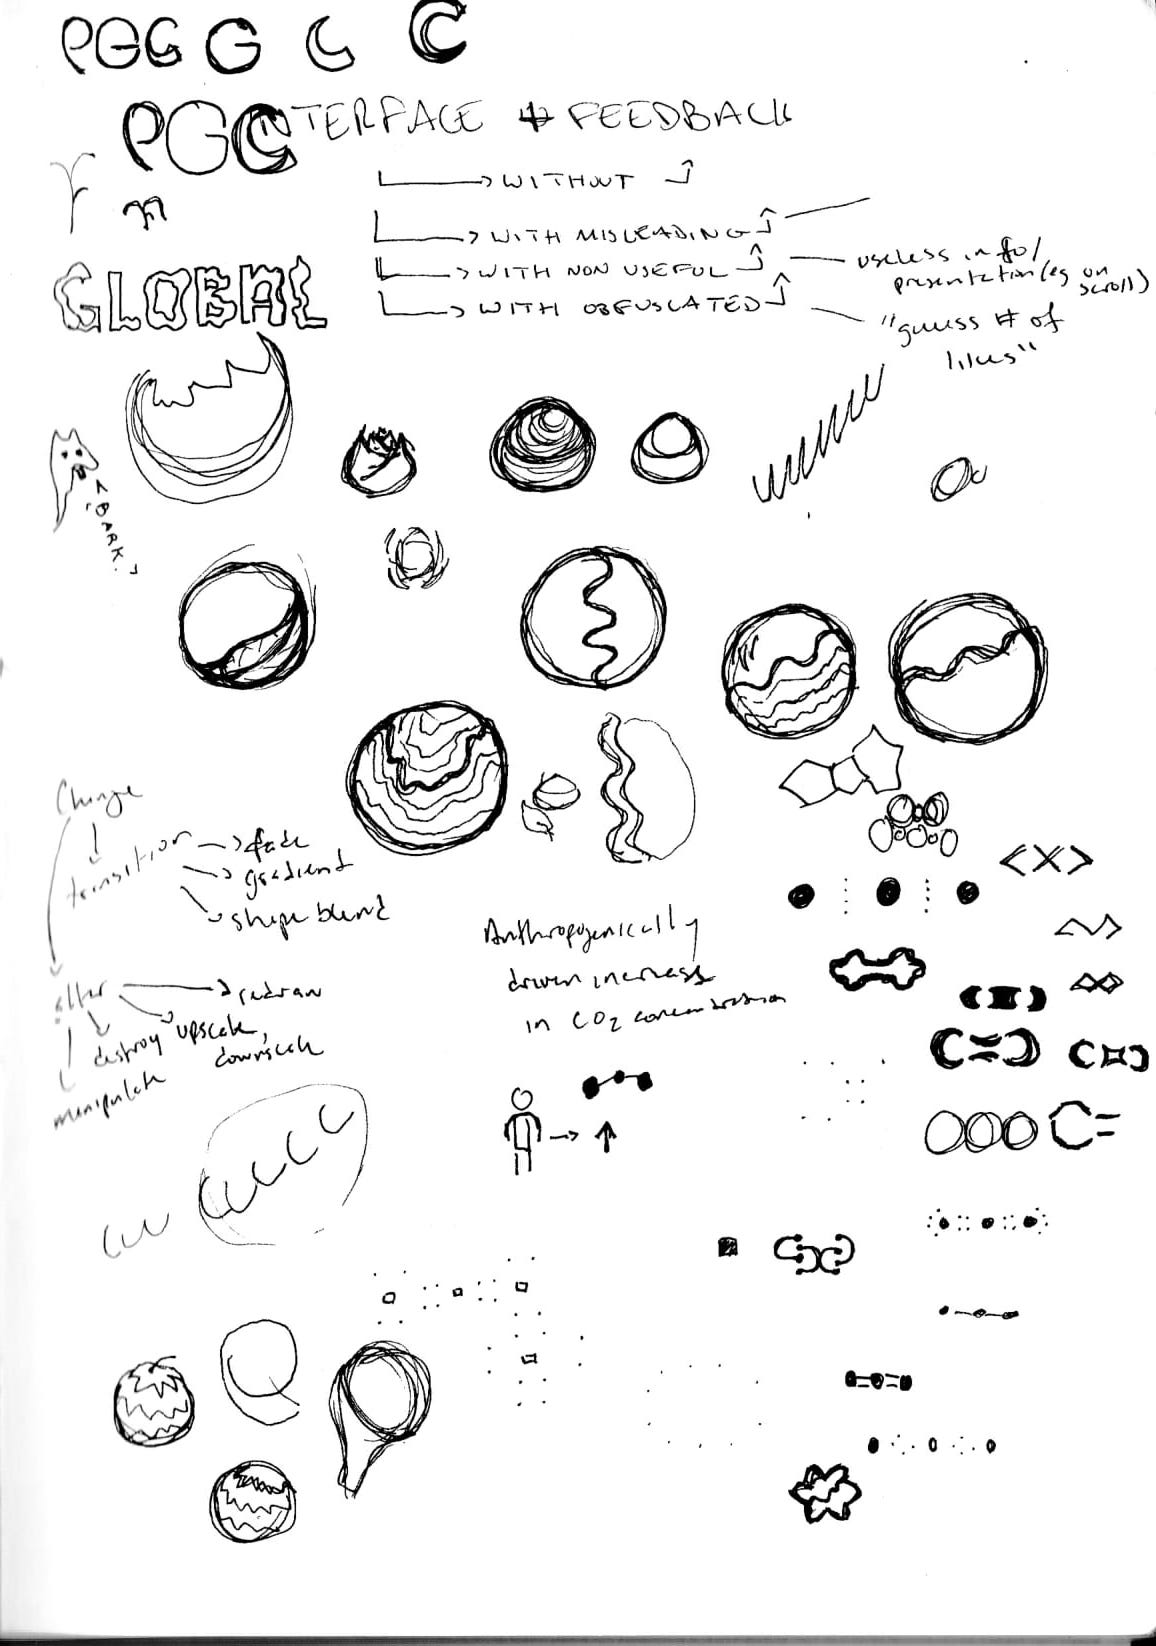 PGC G C C
PGC
INTERFACE + FEEDBACK
WITHOUT
WITH MISLEADING
WITH NON USEFUL
WITH OBFUSCATED
useless info/
presentation (eg on
scroll)
"guess # of
likes"
GLOBAL
BARK!
Change
transition
fade
gradient
shape blend
alter
redraw
upscale,
downscale
destroy
manipulate
Anthropogenically
driven increase
in CO2 concentration
<X>
C=